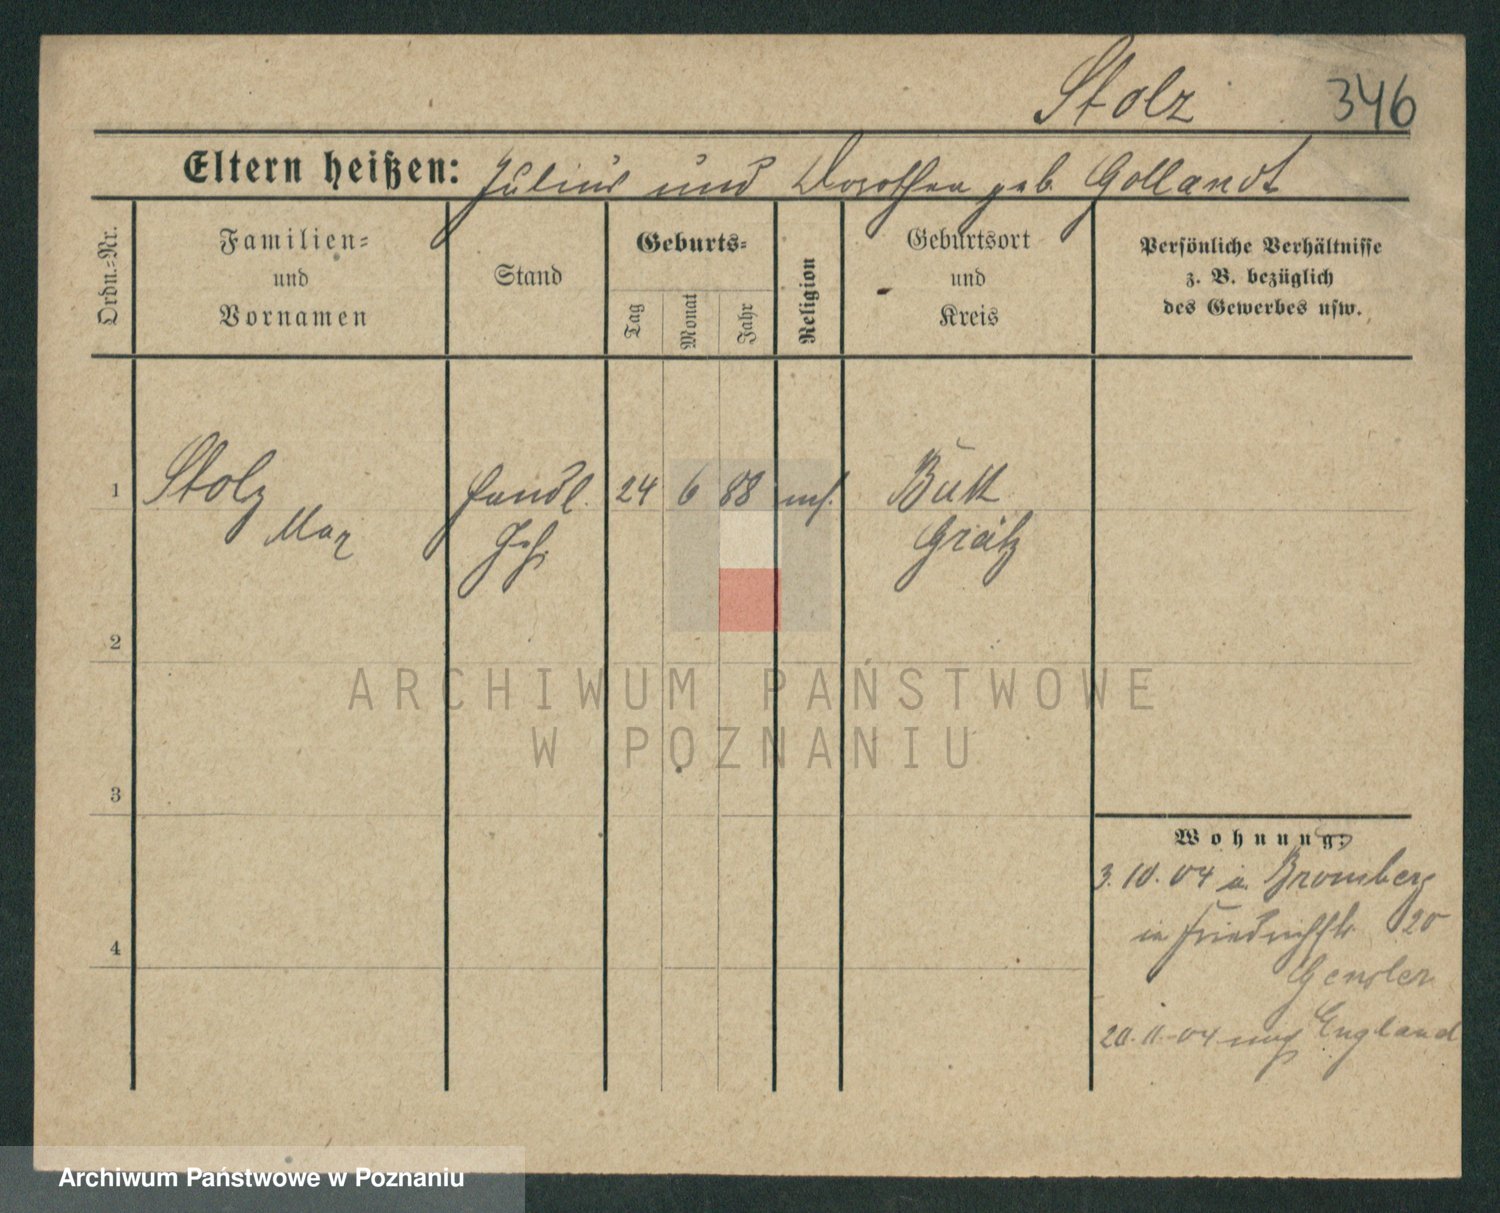 Stolz 346
Eltern heißen: Julius und Dorothea geb. Gollandt
Ordn.=Nr.
Familien=
und
Vornamen
Stand
Geburts=
Tag
Monat
Jahr
Religion
Geburtsort
und
Kreis
Persönliche Verhältnisse
z. B. bezüglich
des Gewerbes usw.
1 Stolz Handl. 24 6 88 Buk
Max Geh. Grätz
2
3
4
Wohnung:
3. 10. 04 a. Bromberg
in Friedrichstr. 20
Gensler
20. 11. 04 nach England
ARCHIWUM PAŃSTWOWE
W POZNANIU
Archiwum Państwowe w Poznaniu